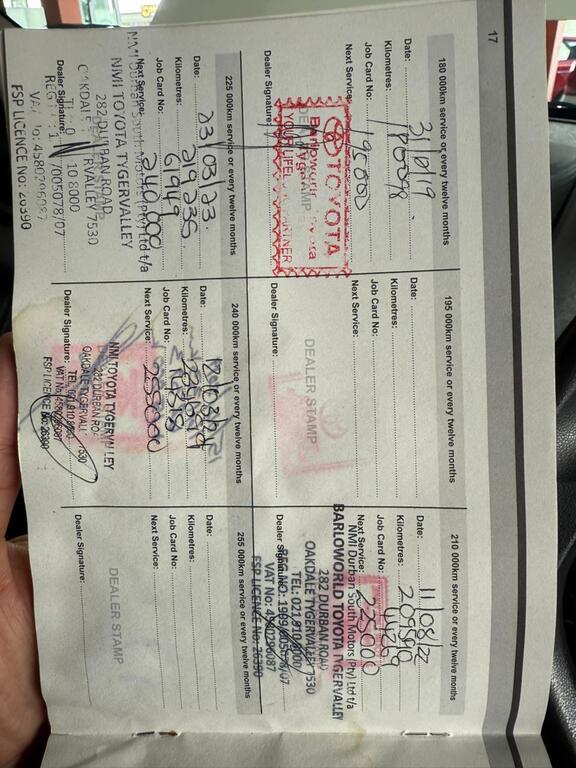 17
180 000km service or every twelve months
Date: 31/10/19
Kilometres: 180098
Job Card No:
Next Service: 195000
Dealer Signature:
DEALER STAMP
TOYOTA
Barloworld Toyota
YOUR LIFELONG PARTNER
195 000km service or every twelve months
Date:
Kilometres:
Job Card No:
Next Service:
Dealer Signature:
DEALER STAMP
210 000km service or every twelve months
Date: 11/08/22
Kilometres:
Job Card No:
Next Service: 225000
NMI Durban South Motors (Pty) Ltd t/a
BARLOWORLD TOYOTA TYGERVALLEY
282 DURBAN ROAD
OAKDALE TYGERVALLEY 7530
TEL: 021 910 8000
Dealer Signature:
VAT No: 4580296087
FSP LICENCE No: 26390
225 000km service or every twelve months
Date: 23/03/23
Kilometres: 219235
Job Card No: 61949
Next Service: 240000
NMI Durban South Motors (Pty) Ltd t/a
NMI TOYOTA TYGERVALLEY
282 DURBAN ROAD
OAKDALE TYGERVALLEY 7530
10 8000
Dealer Signature:
VAT No: 4580296087
FSP LICENCE No: 26390
240 000km service or every twelve months
Date: 12/03/24
Kilometres:
Job Card No:
Next Service: 255000
NMI TOYOTA TYGERVALLEY
282 DURBAN ROAD
OAKDALE TYGERVALLEY 7530
TEL: 021 910 8000
VAT No: 4580296087
FSP LICENCE No: 26390
Dealer Signature:
255 000km service or every twelve months
Date:
Kilometres:
Job Card No:
Next Service:
Dealer Signature:
DEALER STAMP